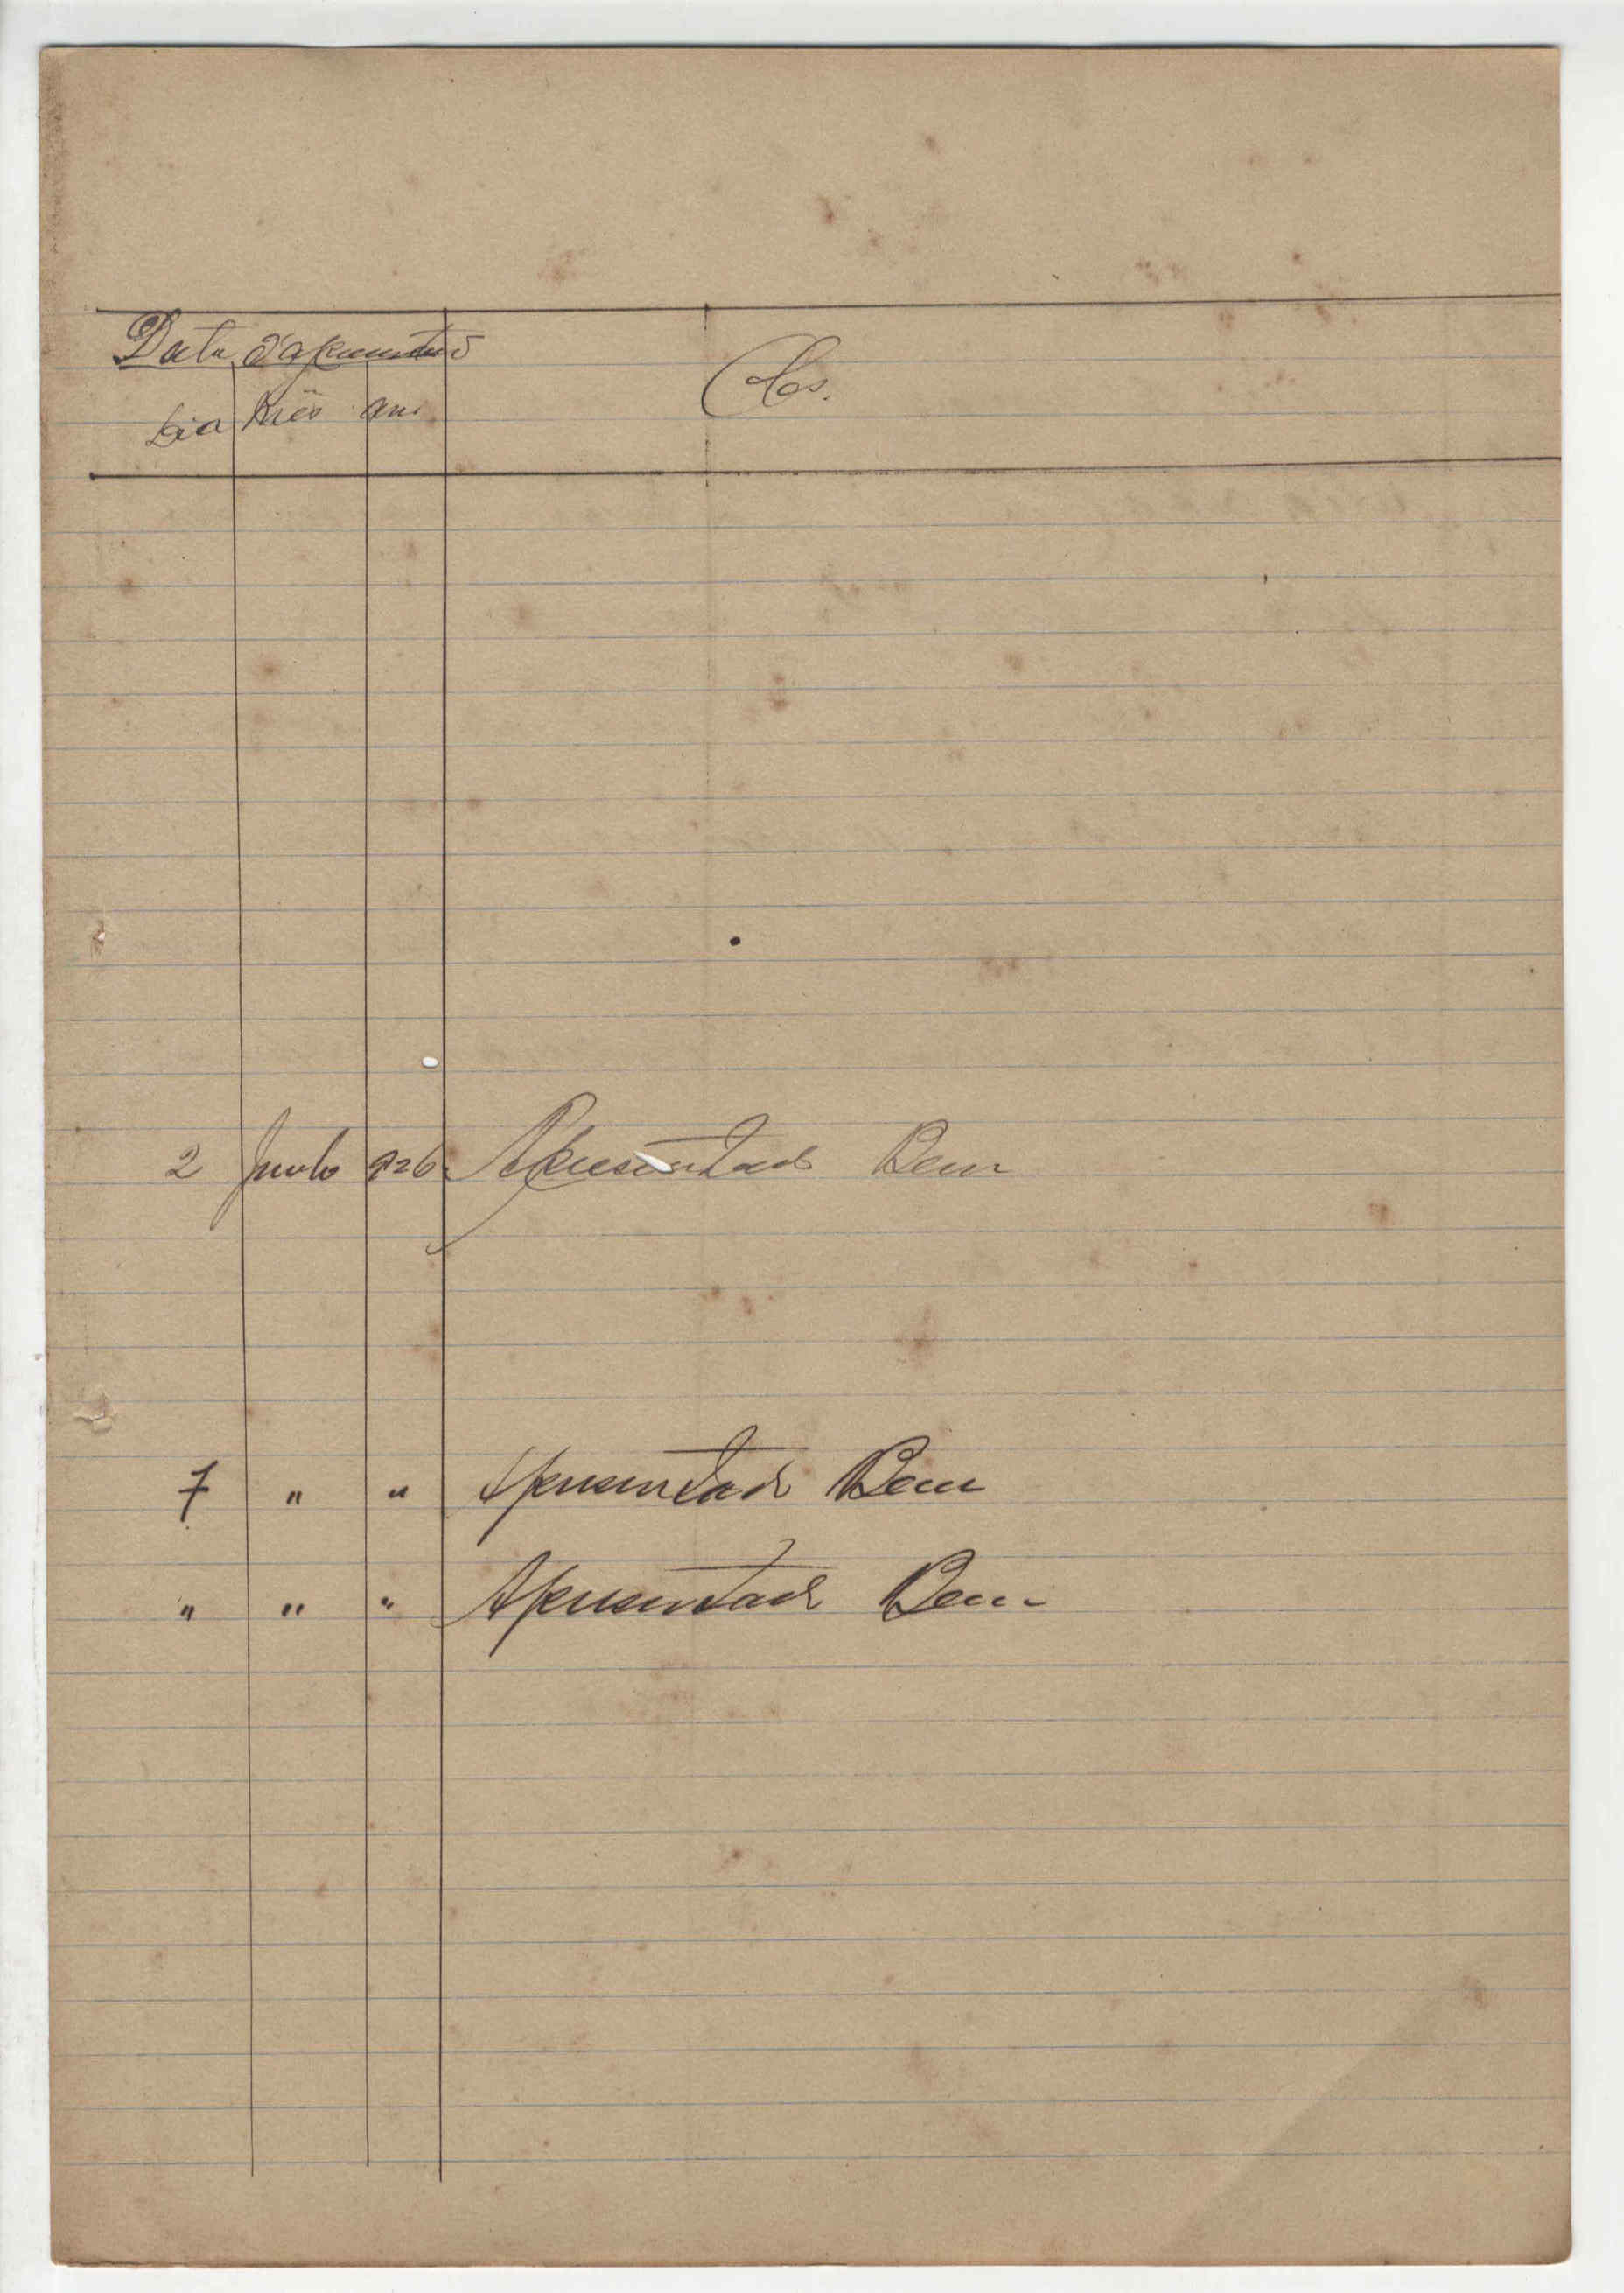 Data d'apresentação
Obs.
Dia Mês ano
2 Junho 926 Apresentado Bem
7 " " Apresentado Bem
" " " Apresentado Bem